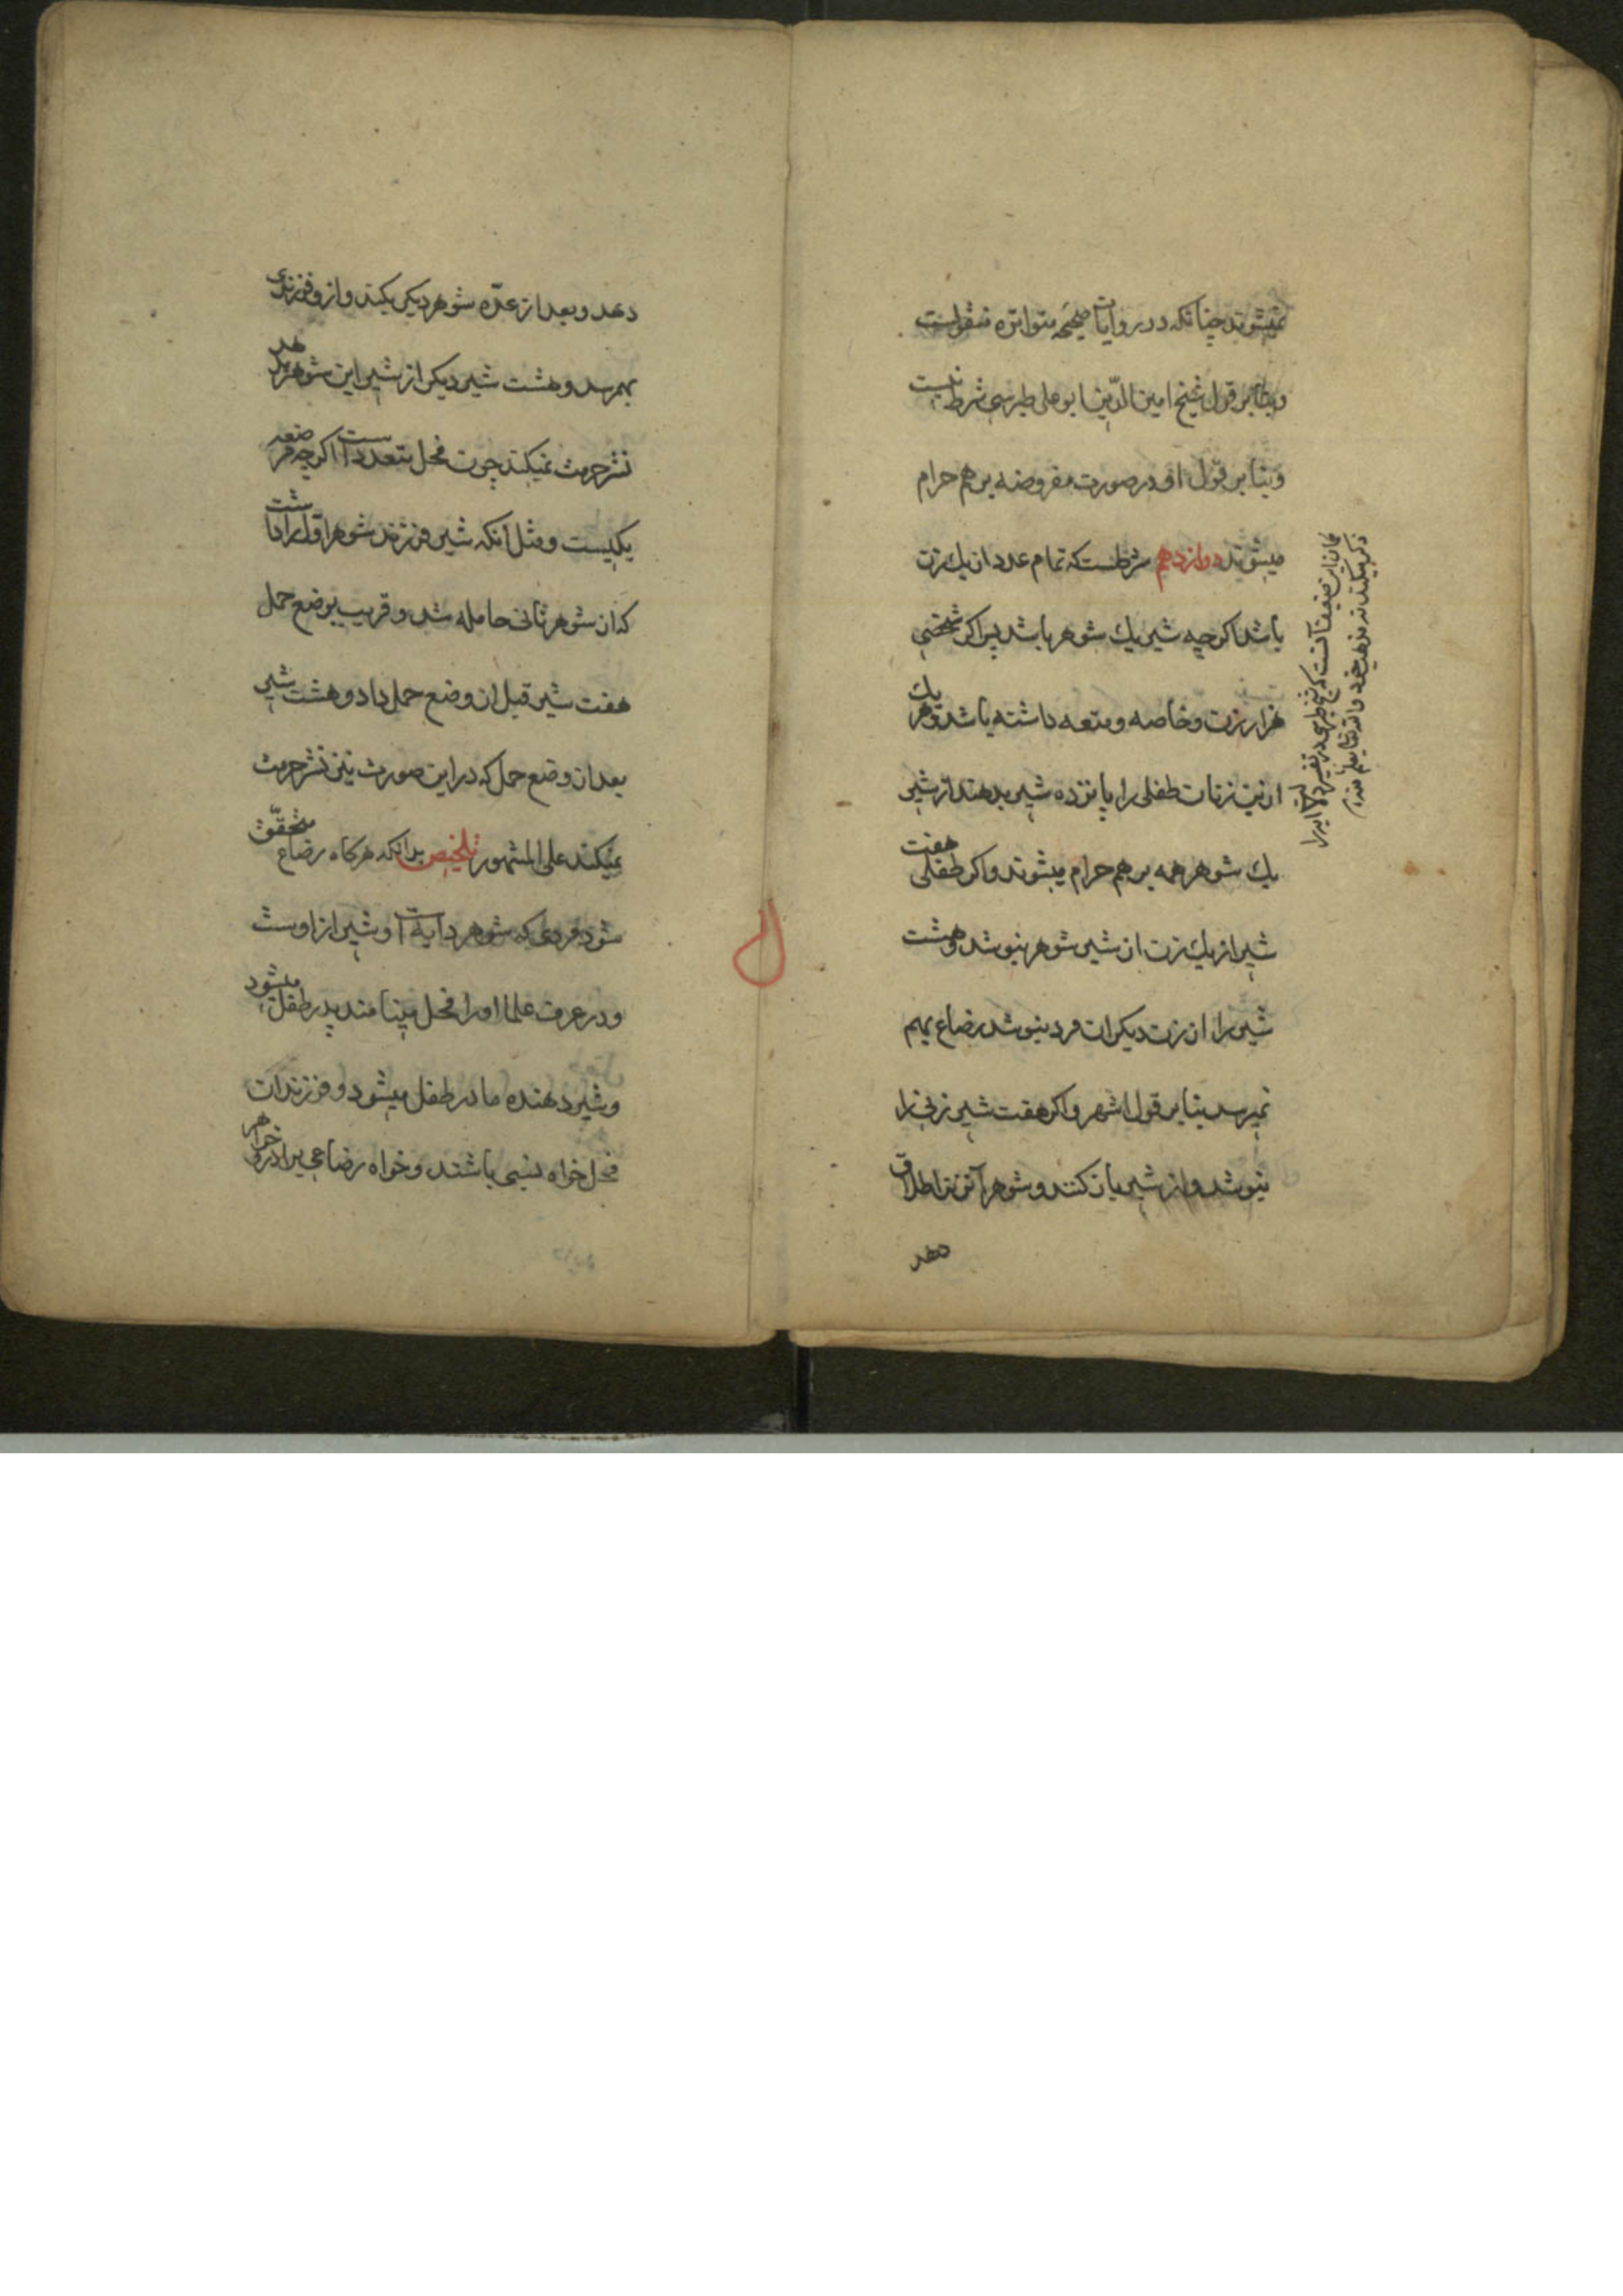 نمیشوند چنانکه در روایات صحیحه متواتره منقولست
و بنا بر قول شیخ امین الدین ابو علی طبرسی شرط نیست
و بنا بر قول او در صورت مفروضه بر هم حرام
میشوند دوازدهم شرطست که تمام عدد از یك زن
باشد اکرچه شیر یك شوهر باشد پس اکر شخصی
هزار زن و خاصه و متعه داشته باشد و هر یك
ازین زنان طفلی را پانزده شیر بدهند از شیر
یك شوهر همه بر هم حرام میشوند و اکر طفلی هفت
شیر از یك زن از شیر شوهر بنوشد و هشت
شیر را از زن دیکر ان مرد بنوشد رضاع بهم
نمیرسد بنا بر قول اشهر و اکر هفت شیر زنی را
بنوشد و از شیر باز کنند و شوهر آنزنرا طلاق
دهد
کمان این ضعیف آنست که شیخ طبرسی در تفسیر
ذکر میکند نه مذهب خود و الله تعالی یعلم منه
دهد و بعد از عدّه شوهر دیکر بکند و از و فرزندی
بهمرسد و هشت شیر دیکر از شیر این شوهر بدهد
نشر حرمت نمیکند چون فحل متعدد است اکرچه مرضعه
یکیست و مثل آنکه شیر فرزند شوهر اوّل را داشت
که از شوهر ثانی حامله شد و قریب بوضع حمل
هفت شیر قبل از وضع حمل داد و هشت شیر
بعد از وضع حمل که در این صورت نیز نشر حرمت
نمیکند علی المشهور تلخیص بدانکه هرکاه رضاع متحقّق
شود مردی که شوهر دایه است و شیر از اوست
و در عرف علما او را فحل مینامند پدر طفل میشود
و شیر دهنده مادر طفل میشود و فرزندان
فحل خواه نسبی باشند و خواه رضاعی برادر و خواهر